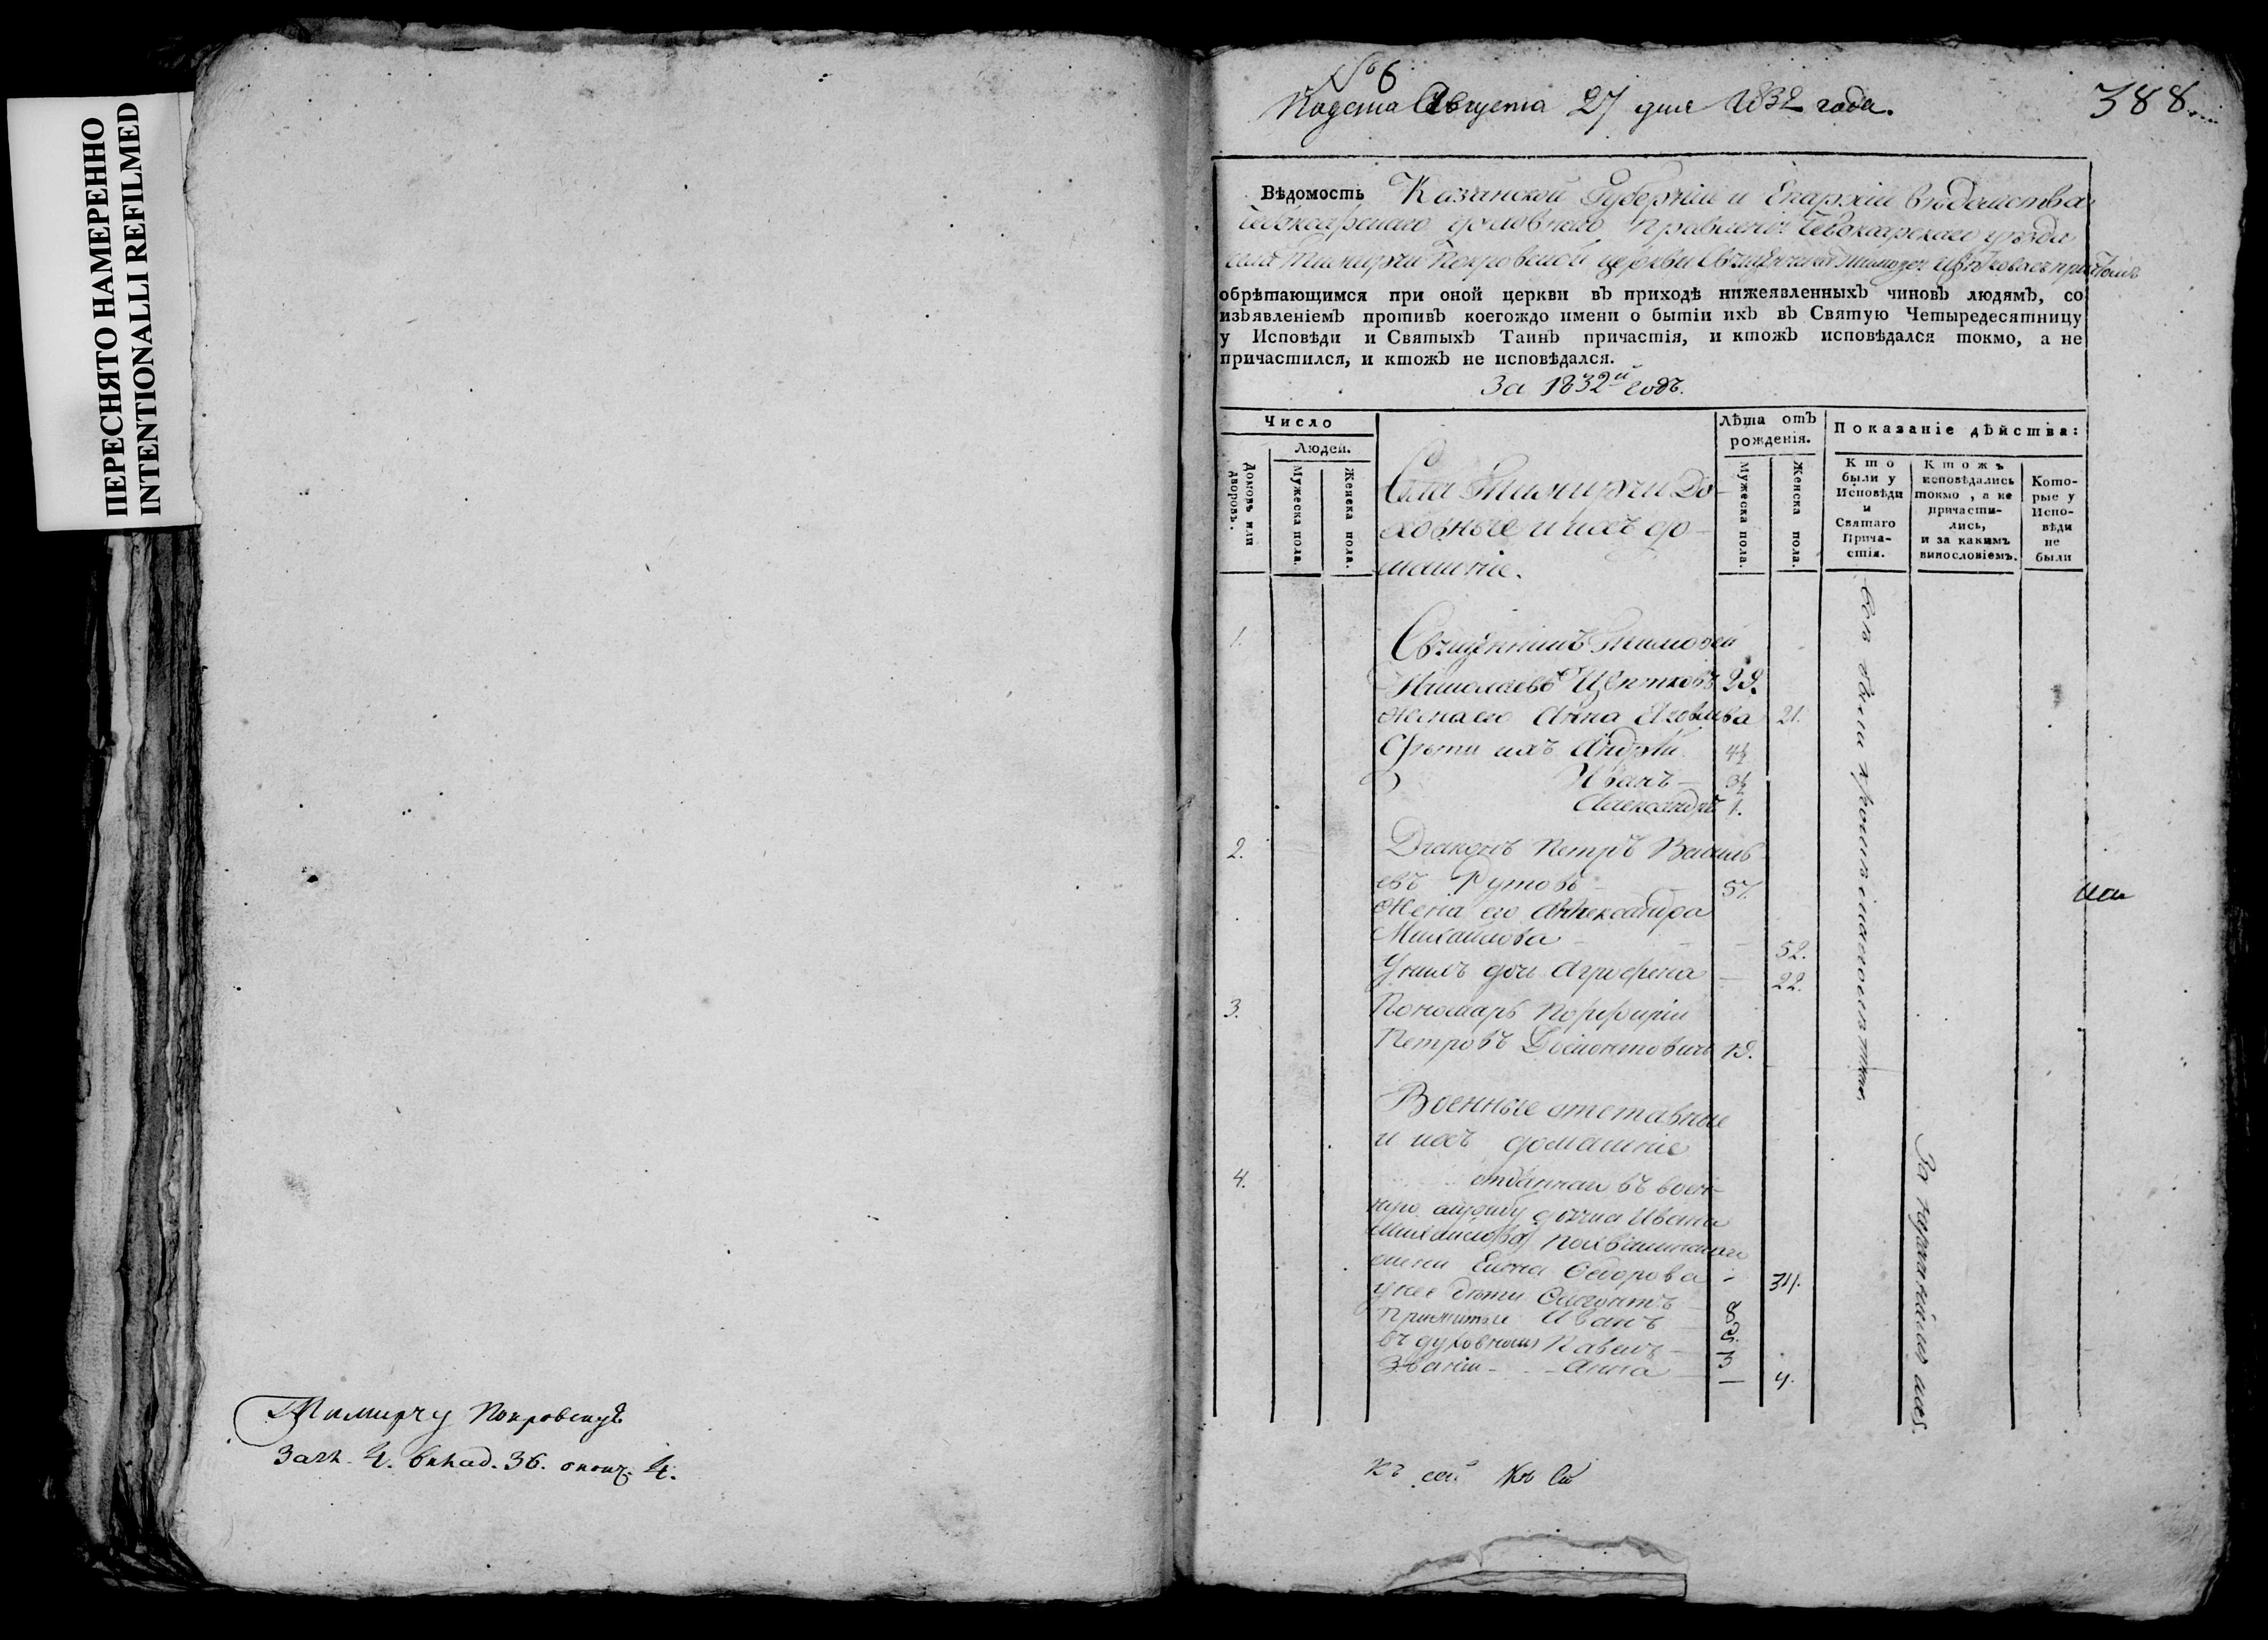 ПЕРЕСНЯТО НАМЕРЕННО
INTENTIONALLI REFILMED
Тимирчу Покровску
Зага. 4. вклад. 36. оконч. 4.
№ 6
Подста Августа 27 дня 1832 года.
388
Вѣдомость Казанской Губерніи и Епархіи вѣдомства
Чебоксарскаго духовнаго правленія Чебоксарскаго уѣзда
села Тимирчи Покровской церкви Священника Тимоѳея Цвѣткова съ причтомъ
обрѣтающимся при оной церкви въ приходѣ нижеявленныхъ чиновъ людямъ, со
изъявленіемъ противъ коегождо имени о бытіи ихъ въ Святую Четыредесятницу
у Исповѣди и Святыхъ Таинъ причастія, и ктожъ исповѣдался токмо, а не
причастился, и ктожъ не исповѣдался.
За 1832й годъ.
Число
Людей.
Домовъ или дворовъ.
Мужеска пола.
Женска пола.
Села Тимирчи Ду-
ховные и ихъ до-
машніе.
Лѣта отъ
рожденія.
Мужеска пола.
Женска пола.
Показаніе дѣйства:
Кто
были у
Исповѣди
и
Святаго
Прича-
стія.
Ктожъ
исповѣдались
токмо, а не
причасти-
лись,
и за какимъ
винословіемъ.
Кото-
рые у
Испо-
вѣди
не
были
1. Священникъ Тимоѳей
Николаевъ Цвѣтковъ 29.
Жена его Анна Яковлева 21.
Дѣти ихъ Андрей 4½
Иванъ 3½
Александръ 1.
2. Діаконъ Петръ Василь-
евъ Рутовъ 57.
Жена его Александра
Михайлова 52.
У нихъ дочь Агрофена 22.
3. Пономарь Порфирій
Петровъ 19.
Военные отставные
и ихъ домашніе
4. отданнаго въ воен-
ную службу дьячка Ивана
Михайлова
Елена Ѳедорова 34.
у нее дѣти
прижитые Иванъ
въ духовномъ Павелъ 3
званіи - Анна 4.
Всѣ были
За
къ сей